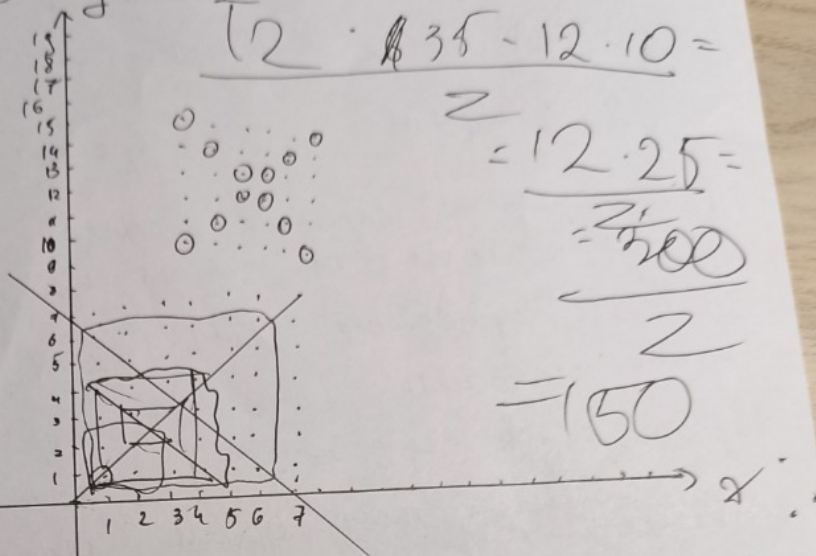 12 · 35 - 12 · 10 =
2
= 12 · 25 =
2
= 300
2
= 150
y
19
18
17
16
15
14
13
12
11
10
9
8
7
6
5
4
3
2
1
1 2 3 4 5 6 7
x